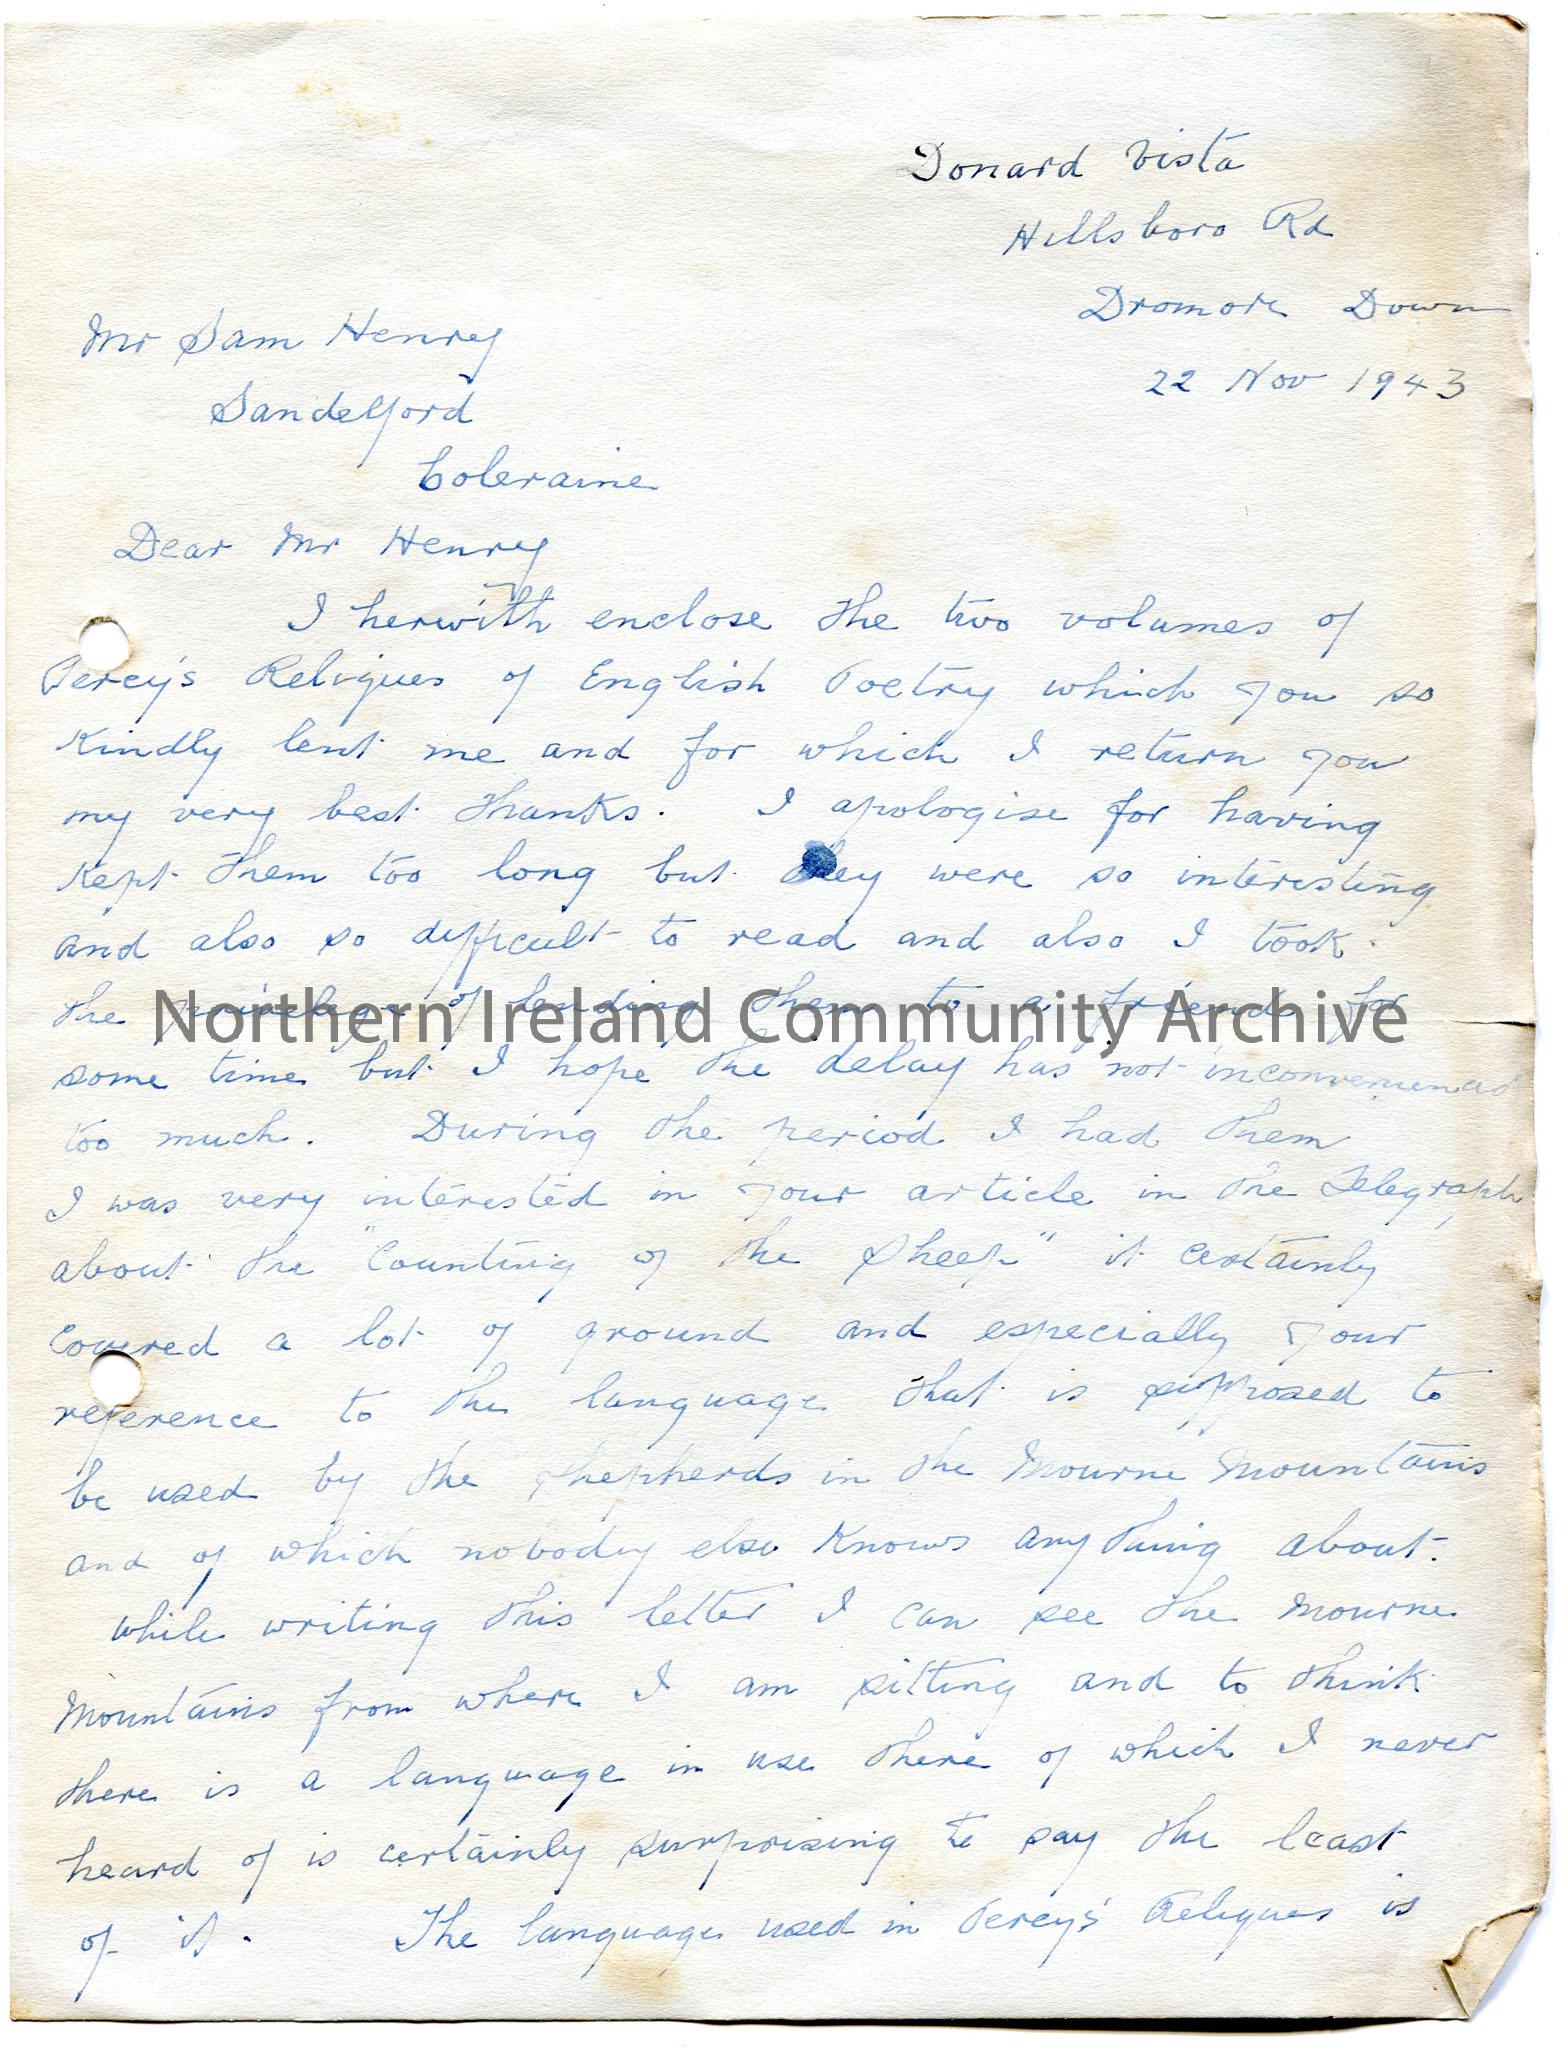 Donard Vista
Hillsboro Rd
Dromore Down
22 Nov 1943
Mr Sam Henry
Sandelford
Coleraine
Dear Mr Henry
I herwith enclose the two volumes of
Percy's Reliques of English Poetry which you so
kindly lent me and for which I return you
my very best thanks. I apologise for having
kept them too long but they were so interesting
and also so difficult to read and also I took
the privelege of lending them to a friend for
some time but I hope the delay has not inconvenienced
too much. During the period I had them
I was very interested in your article in the Telegraph
about the "Counting of the Sheep" it certainly
covered a lot of ground and especially your
reference to the language that is supposed to
be used by the shepherds in the Mourne Mountains
and of which nobody else knows anything about.
While writing this letter I can see the Mourne
Mountains from where I am sitting and to think
there is a language in use there of which I never
heard of is certainly surprising to say the least
of it. The language used in Percy's Reliques is
Northern Ireland Community Archive